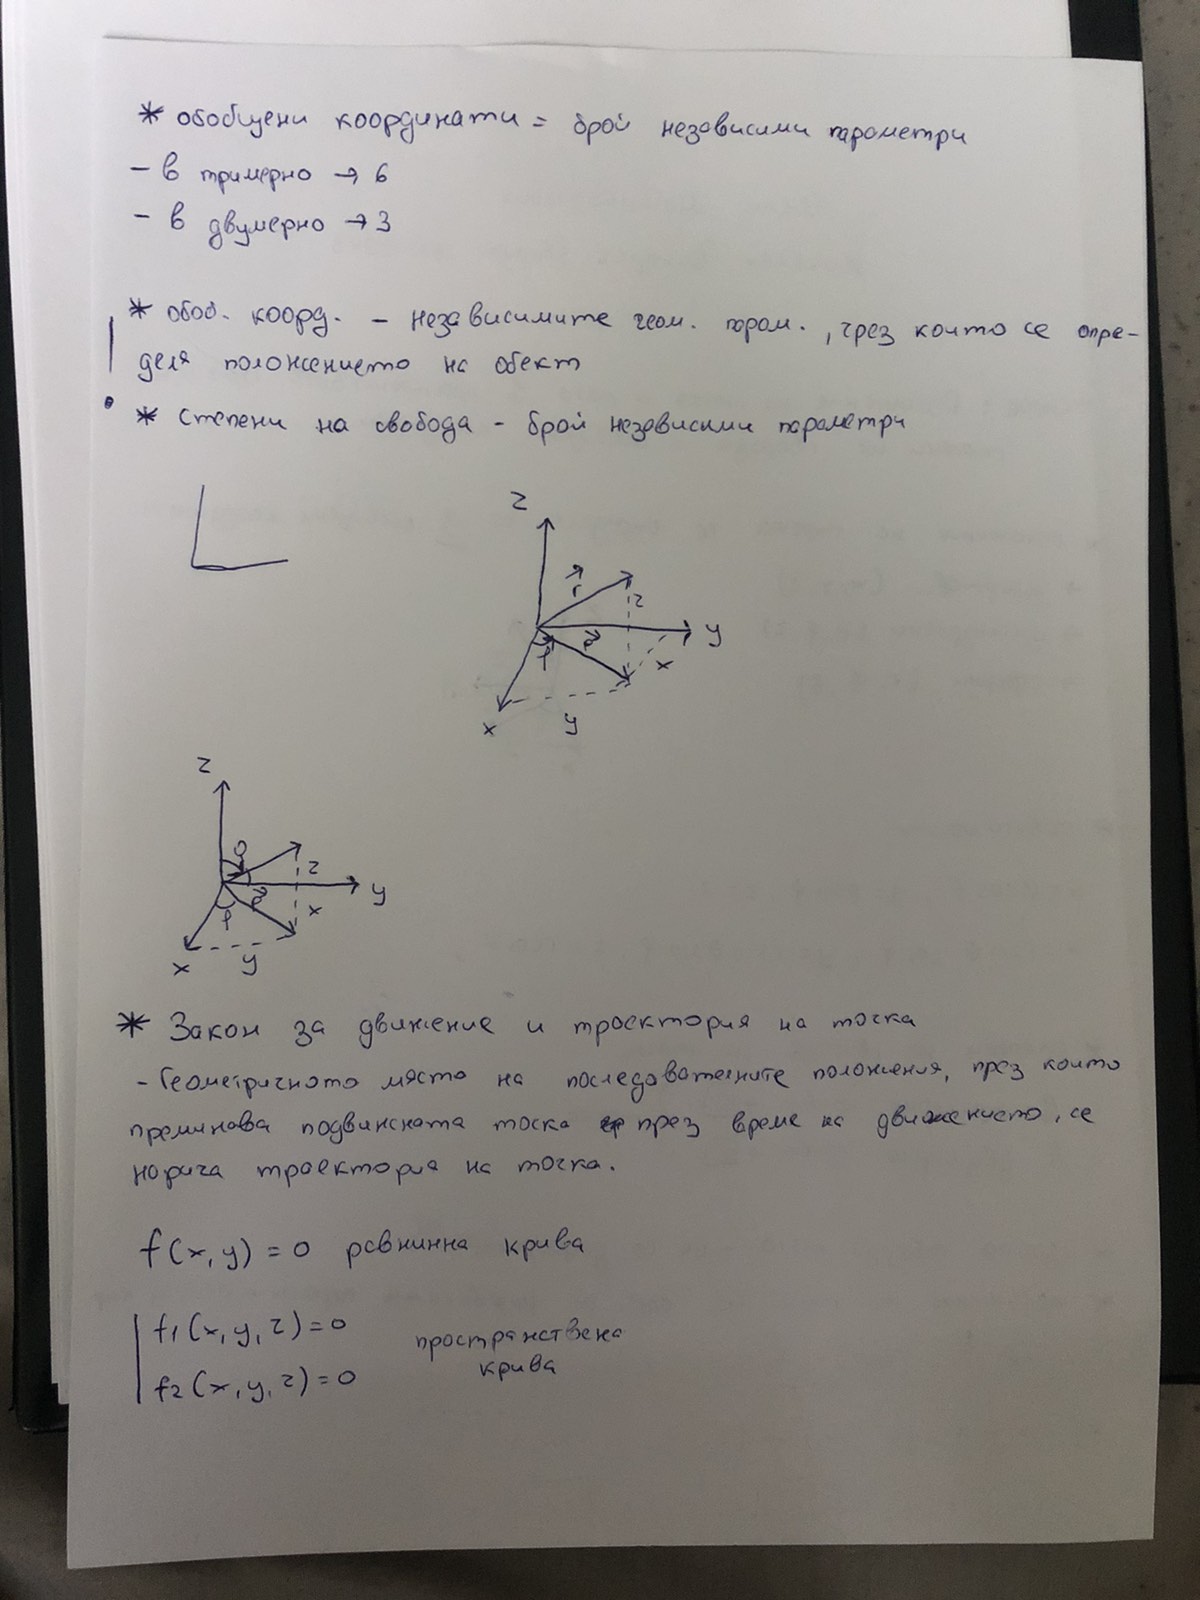 * обобщени координати = брой независими параметри
- в тримерно → 6
- в двумерно → 3
* обоб. коорд. - независимите геом. парам., чрез които се опре-
деля положението на обект
* степени на свобода - брой независими параметри
z
r
z
y
ρ
φ
x
x
y
z
θ
z
y
ρ
φ
x
x
y
* Закон за движение и траектория на точка
- Геометричното място на последователните положения, през които
преминава подвижната точка през време на движението, се
нарича траектория на точка.
f(x, y) = 0 равнинна крива
f1(x, y, z) = 0
пространствена
крива
f2(x, y, z) = 0